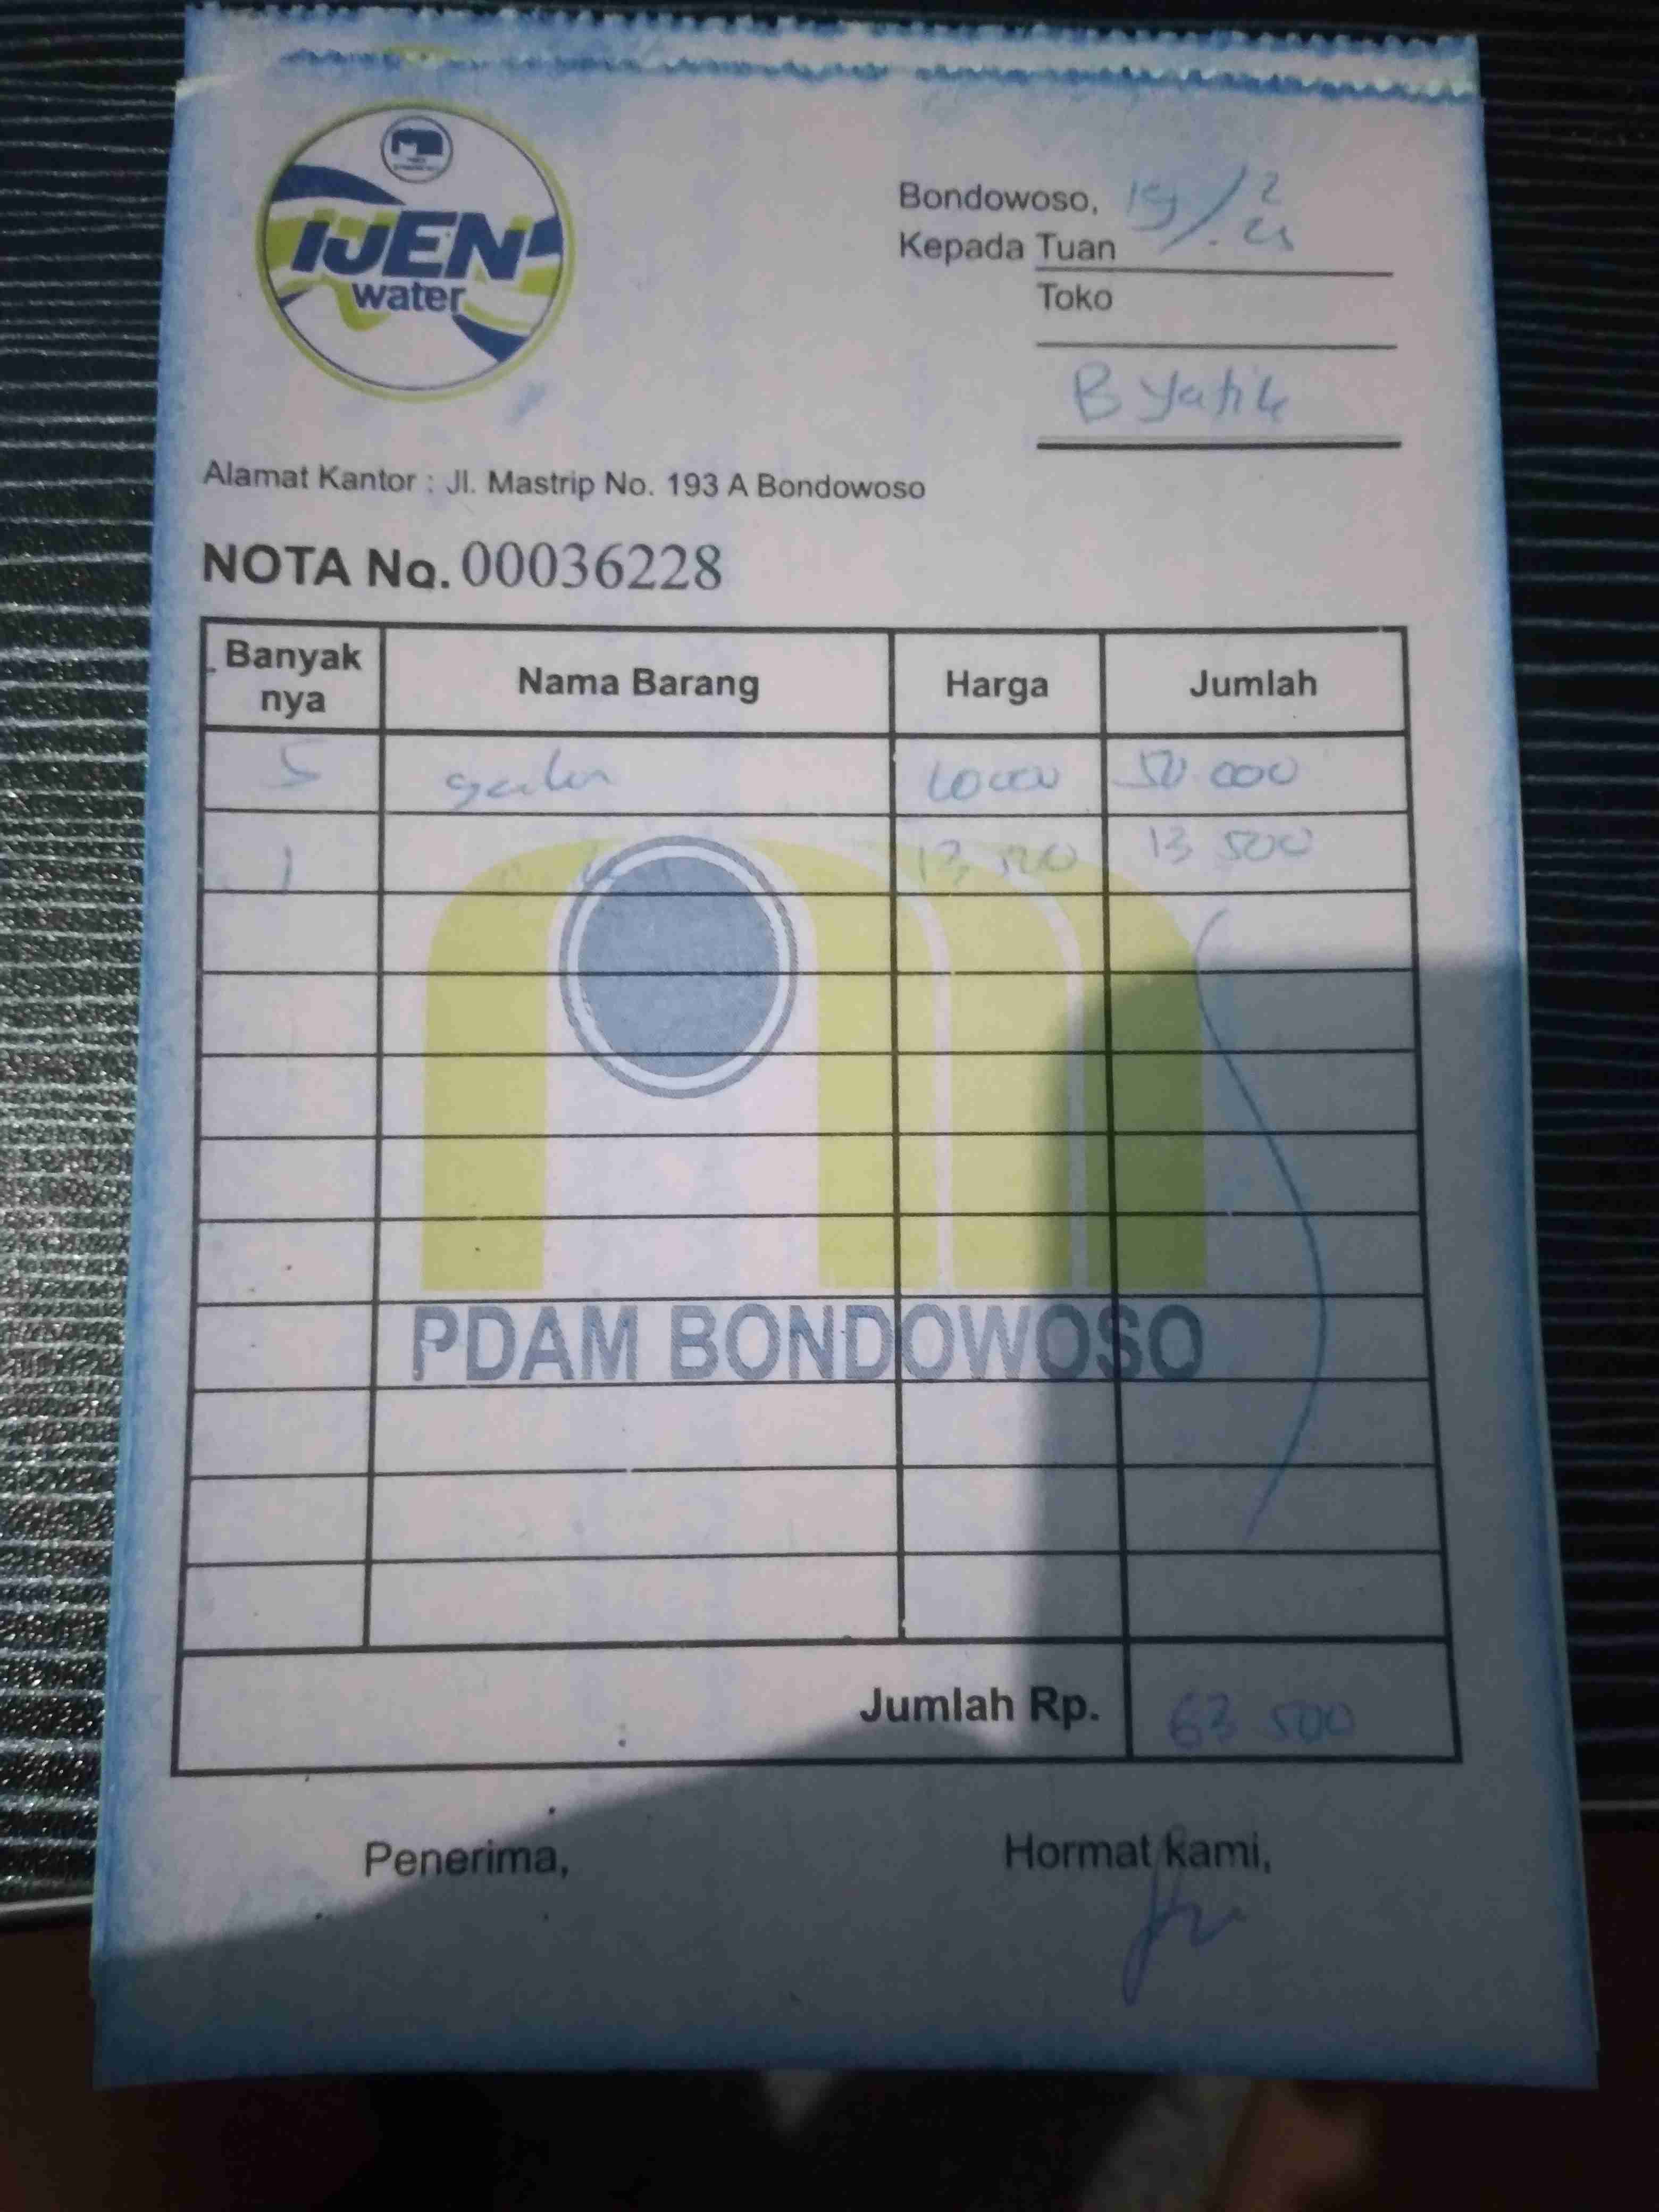 IJEN
water
Bondowoso, 19/2
Kepada Tuan
Toko
B Yatik
Alamat Kantor : Jl. Mastrip No. 193 A Bondowoso
NOTA No. 00036228
Banyak nya Nama Barang Harga Jumlah
5 galon 10000 50 000
1 13,500 13 500
PDAM BONDOWOSO
Jumlah Rp. 63 500
Penerima, Hormat kami,